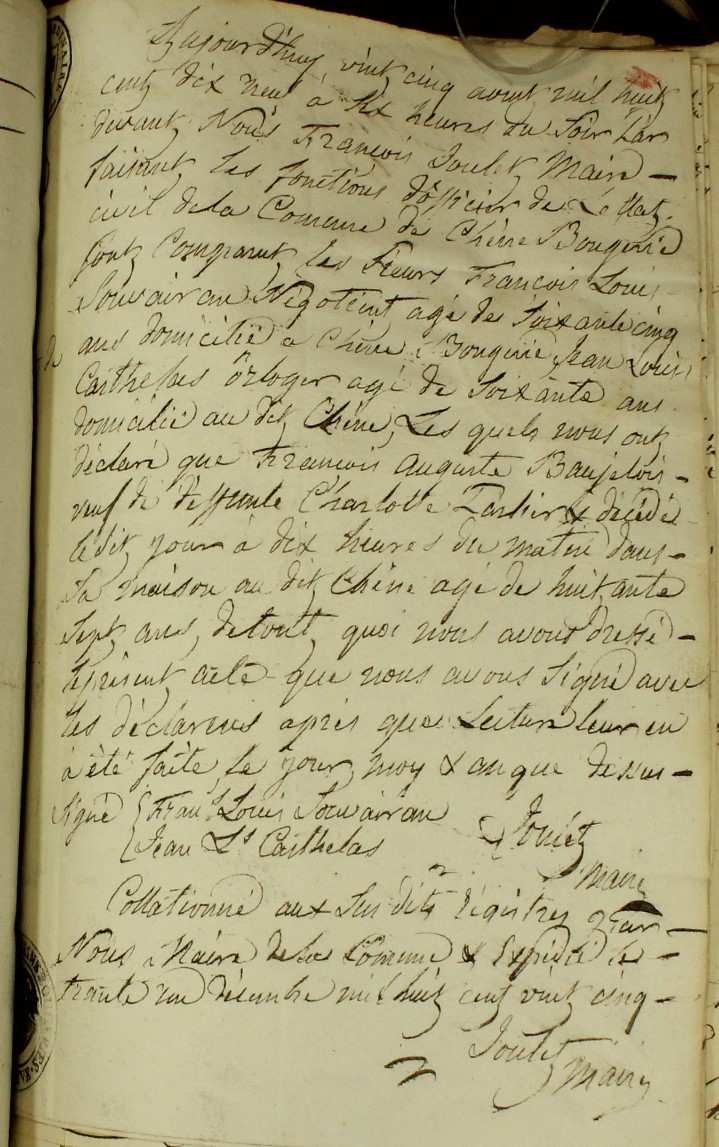 Aujourd'huy vint cinq aoust mil huit
cent dix neuf à six heures du soir Par
devant Nous François Joulet Maire —
faisant les fonctions d'officier de L'Etat
civil de la Comune de Chêne Bougerie
sont comparut les Sieurs François Louis
Souvairan Négotient agé de soixante cinq
ans domicilié a Chêne Bougerie, Jean Louis
Casthelas orloger agé de soixante ans
domicilié au dit Chêne, Les quels nous ont
déclaré que François Auguste —
veuf de deffunte Charlotte décédé
ledit jour à dix heures du matin dans —
sa maison au dit Chêne agé de huitante
sept ans, de tout quoi nous avons dressé —
le présent acte que nous avons signé avec
les déclarens après que Lecture leur en
à été faite le jour, moy & an que dessus —
signé Fran.s Louis Souvairan
Jean L.s Casthelas
Joulet
Maire
Collationné aux sus dits régistres par —
Nous Maire de la Comune & Expédié le —
trante un décembre mil huit cent vint cinq —
Joulet Maire